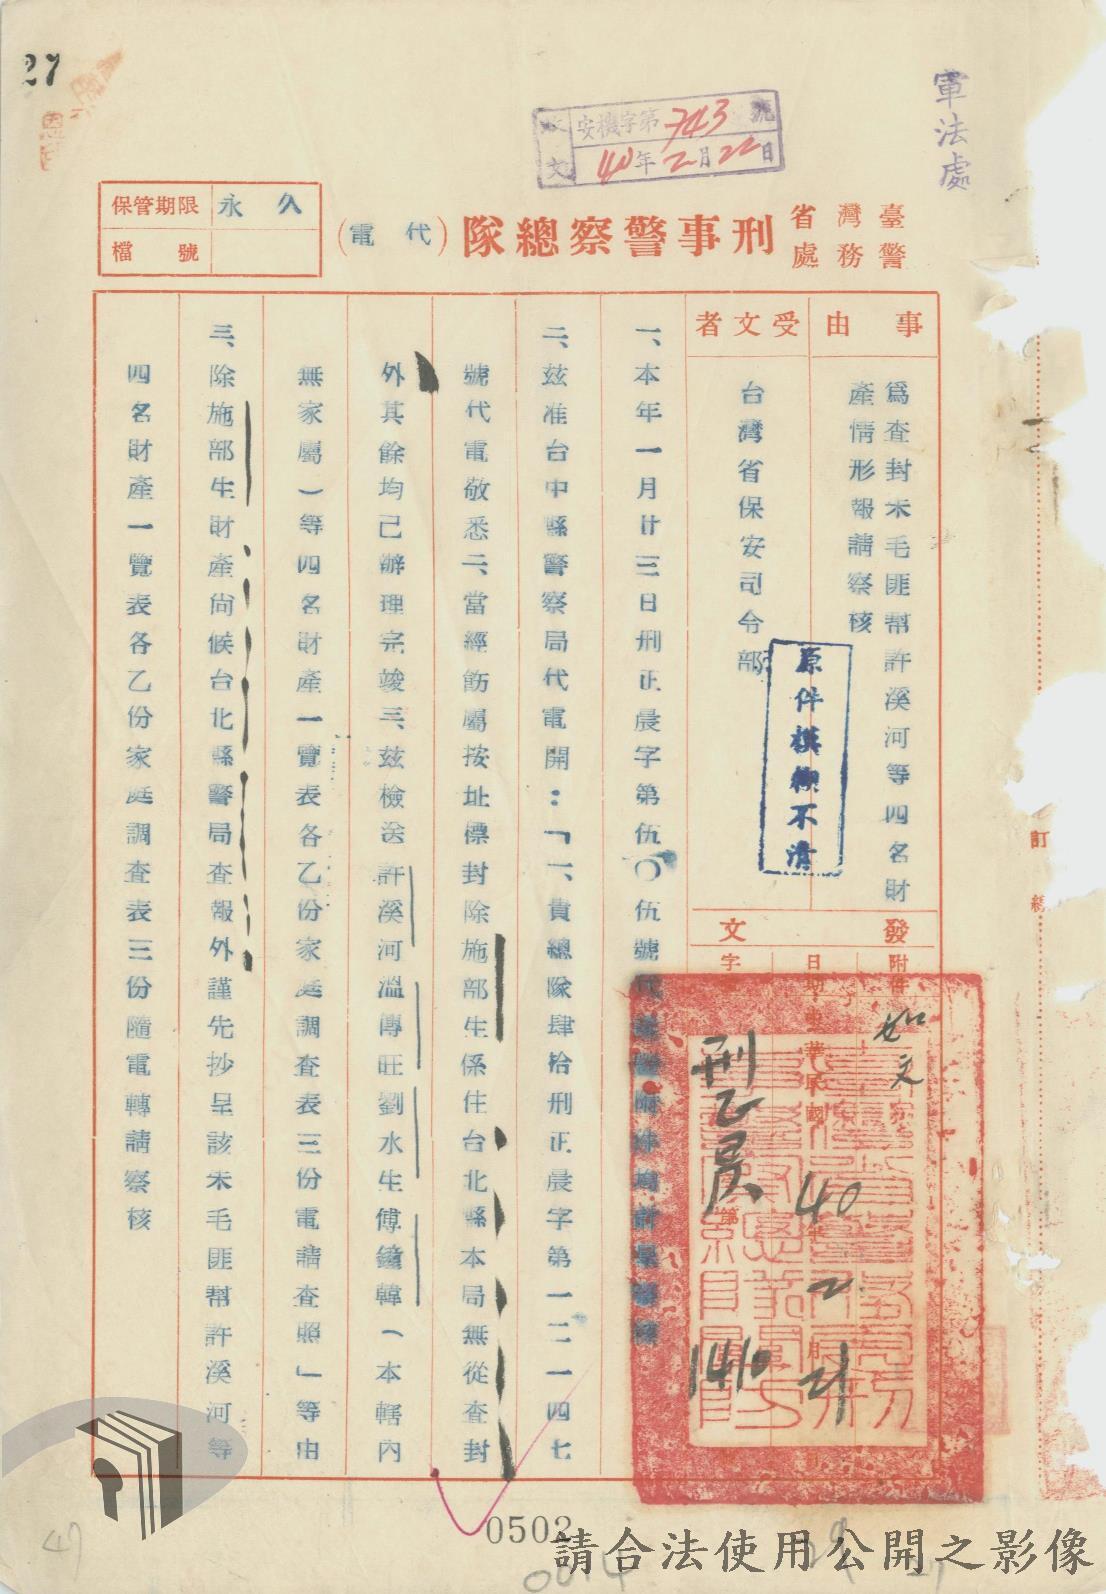 27
軍法處
收文
安機字第743號
40年2月22日
保管期限 永久
檔號
臺灣省警務處刑事警察總隊(代電)
事由
為查封朱毛匪幫許溪河等四名財
產情形報請察核
受文者
台灣省保安司令部
原件模糊不清
發文
附件
如文
日期
中華民國40年2月21日
字
刑乙晨
第
1410
一、本年一月廿三日刑正晨字第伍〇伍號代電暨附件均計呈
二、茲准台中縣警察局代電開：「一、貴總隊肆拾刑正晨字第一二一四七
號代電敬悉二、當經飭屬按址標封除施部生係住台北縣本局無從查封
外其餘均已辦理完竣三、茲檢送許溪河溫傳旺劉水生傅鐘韓（本轄內
無家屬）等四名財產一覽表各乙份家庭調查表三份電請查照」等由
三、除施部生財產尚候台北縣警局查報外謹先抄呈該朱毛匪幫許溪河等
四名財產一覽表各乙份家庭調查表三份隨電轉請察核
訂
線
0502
47
請合法使用公開之影像